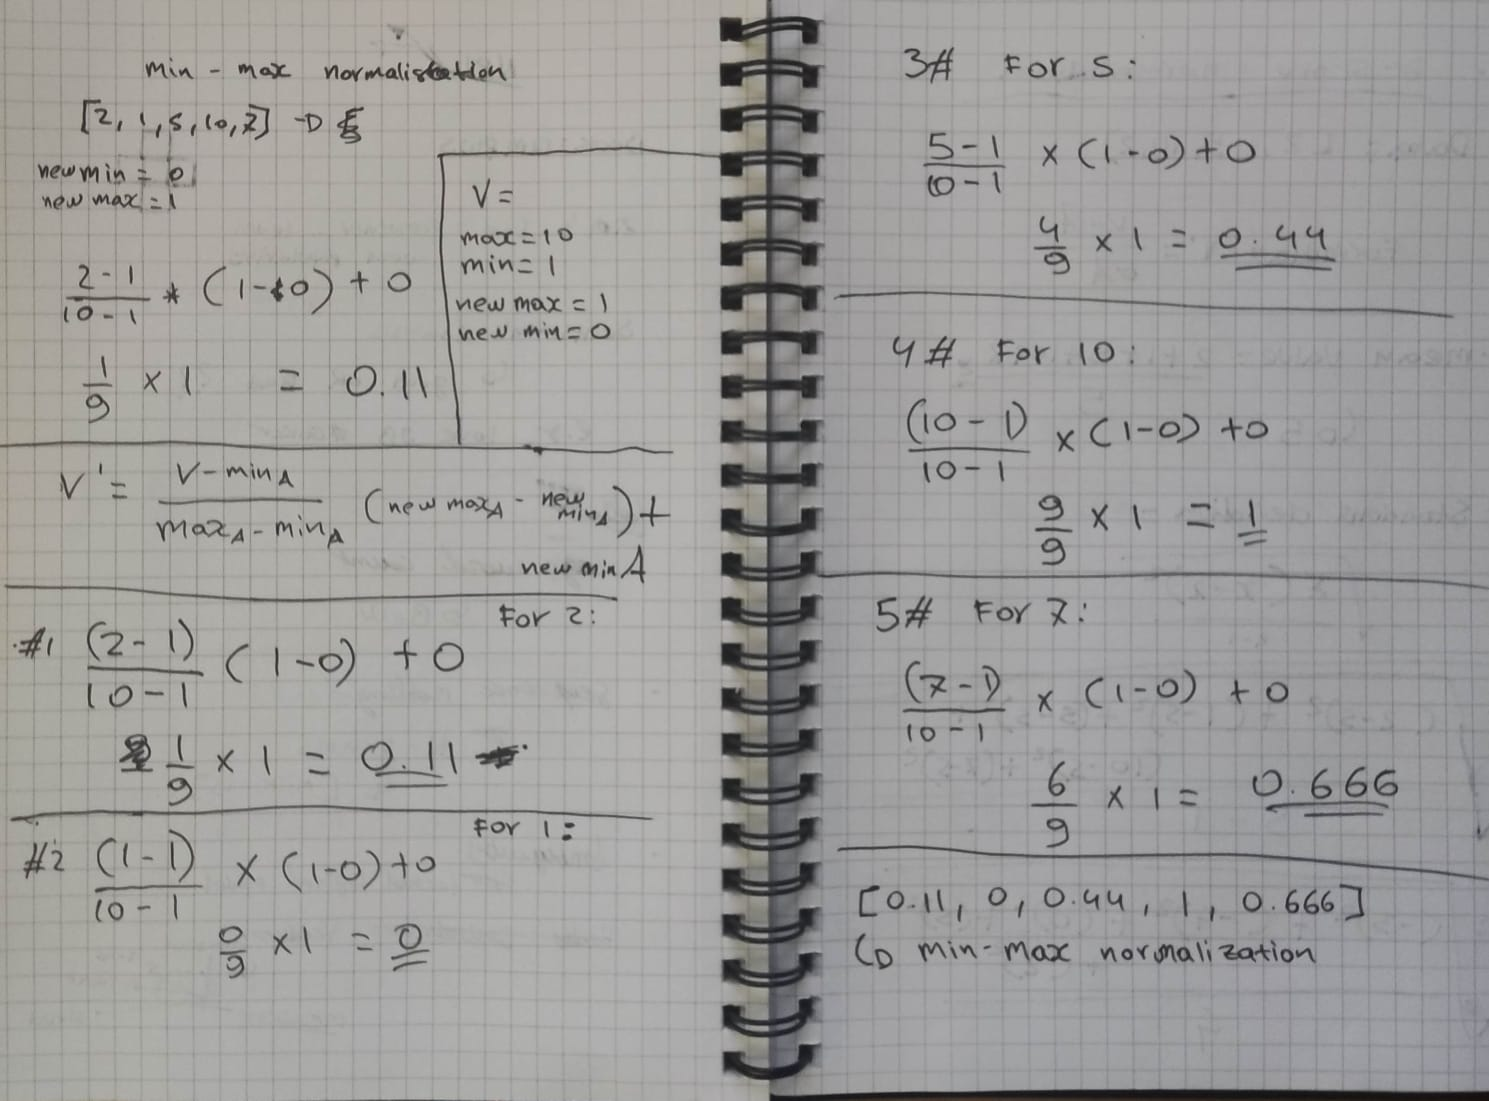 min - max normalisation
[2, 1, 5, 10, 7] →
new min = 0
new max = 1
2 - 1 / 10 - 1 * (1 - 0) + 0
1/9 x 1 = 0.11
V =
max = 10
min = 1
new max = 1
new min = 0
V' = V - minA / maxA - minA (new maxA - new minA) +
new minA
For 2:
#1 (2 - 1) / 10 - 1 (1 - 0) + 0
1/9 x 1 = 0.11
For 1:
#2 (1 - 1) / 10 - 1 x (1 - 0) + 0
0/9 x 1 = 0
3# For 5:
5 - 1 / 10 - 1 x (1 - 0) + 0
4/9 x 1 = 0.44
4# For 10:
(10 - 1) / 10 - 1 x (1 - 0) + 0
9/9 x 1 = 1
5# For 7:
(7 - 1) / 10 - 1 x (1 - 0) + 0
6/9 x 1 = 0.666
[0.11, 0, 0.44, 1, 0.666]
↳ min-max normalization